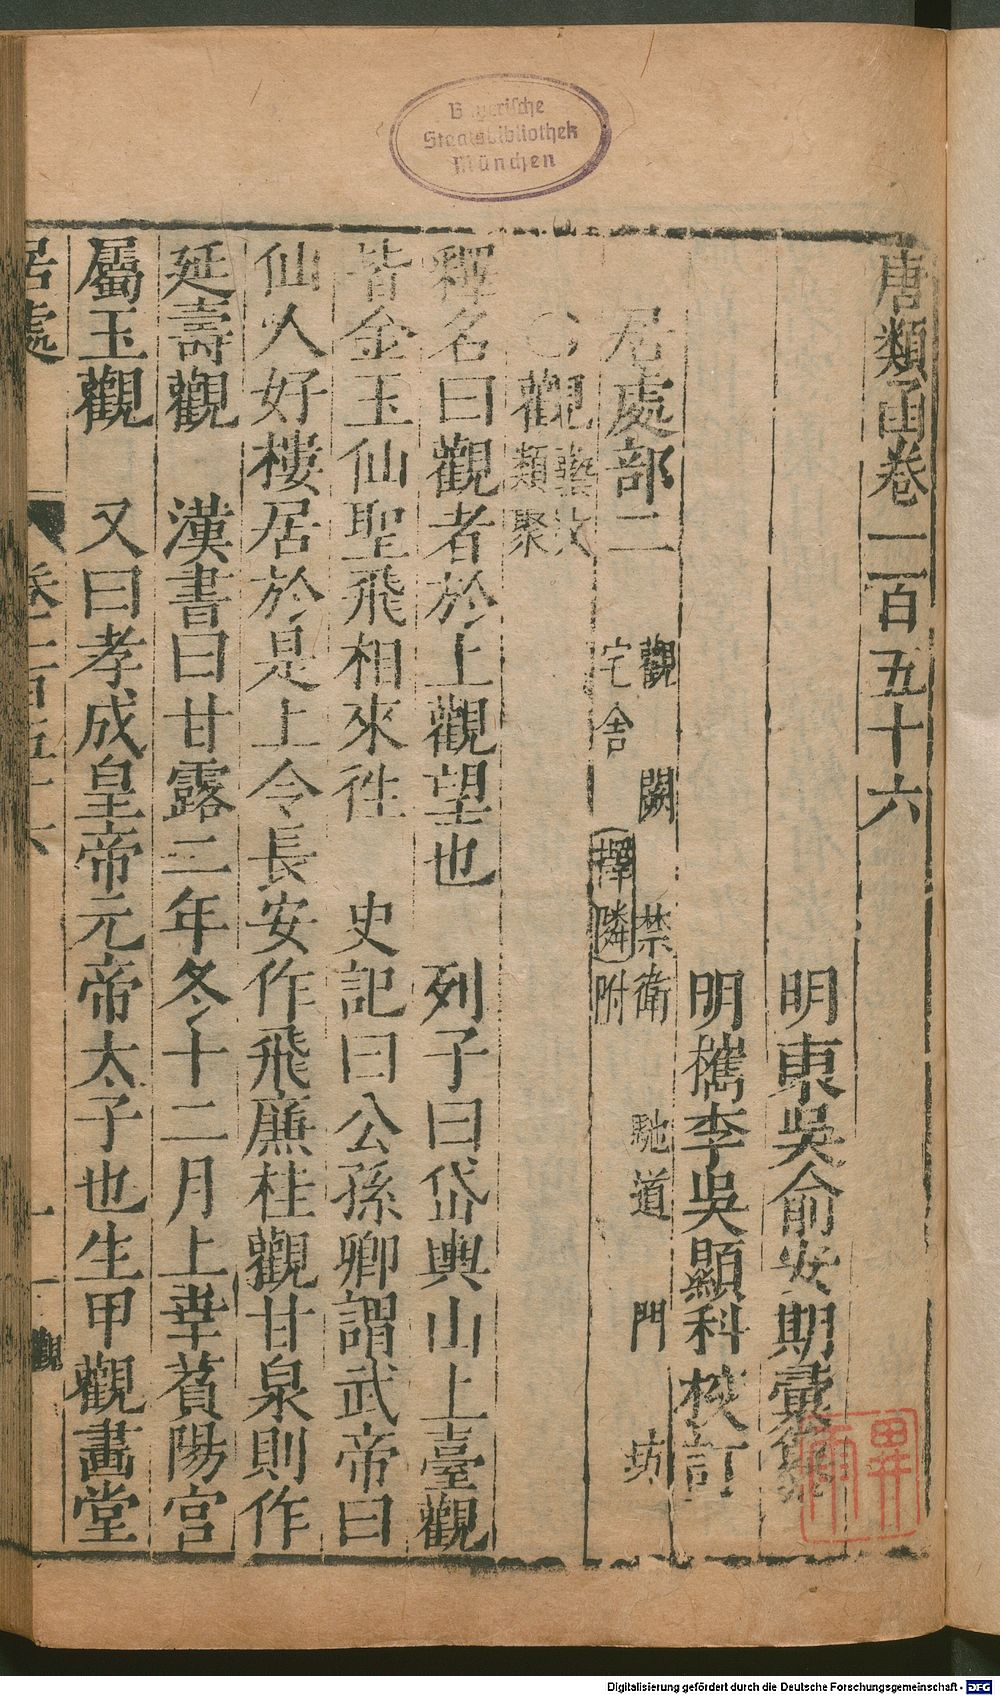 Bayerische
Staatsbibliothek
München
唐類函卷一百五十六
明東吳俞安期彙纂
明檇李吳顯科校訂
居處部二
觀 闕 禁衛 馳道 門 坊
宅舍 擇隣附
〇觀藝文類聚
釋名曰觀者於上觀望也 列子曰岱輿山上臺觀
皆金玉仙聖飛相來往 史記曰公孫卿謂武帝曰
仙人好樓居於是上令長安作飛廉桂觀甘泉則作
延壽觀 漢書曰甘露二年冬十二月上幸萯陽宮
屬玉觀 又曰孝成皇帝元帝太子也生甲觀畫堂
居處 卷一百五十六 一 觀
Digitalisierung gefördert durch die Deutsche Forschungsgemeinschaft - DFG